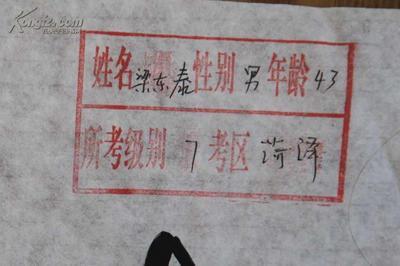 Kongfz.com
姓名梁东泰性别男年龄43
所考级别7考区菏泽